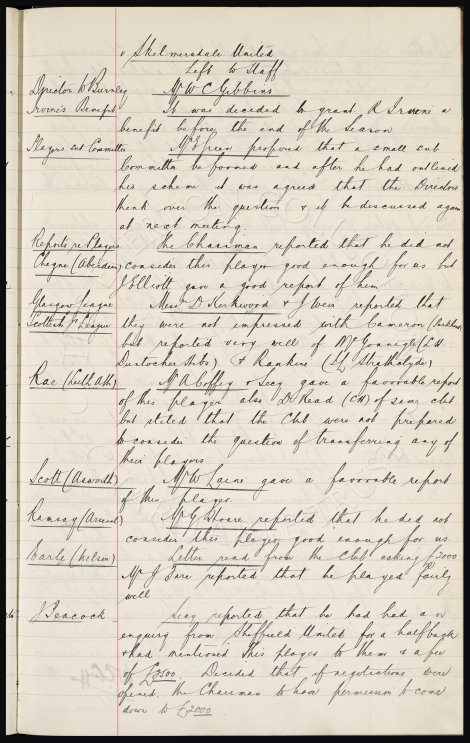 v Skelmersdale United
Left to Staff.
Director to Burnley Mr W C Gibbins
Irvine's Benefit It was decided to grant R Irvine a
benefit before the end of the Season
Players sub Committee Mr Green proposed that a small sub
Committee be formed and after he had outlined
his scheme it was agreed that the Directors
think over the question & it be discussed again
at next meeting.
Reports re Players The Chairman reported that he did not
Cheyne (Aberdeen) consider this player good enough for us but
J Elliott gave a good report of him
Glasgow League Messrs D Kirkwood & J Weir reported that
Scottish Jr League they were not impressed with Cameron
but reported very well of McGonnigle (LH
Duntocher Hibs) & Rankine (LH Strathclyde)
Rae (Leith Ath) Mr A Coffey & Secy gave a favorable report
of this player also D Read (CH) of same club
but stated that the Club were not prepared
to consider the question of transferring any of
their players
Scott (Ashworth) Mr W Laine gave a favorable report
of this player.
Ramsay (Arsenal) Mr G Hoare reported that he did not
consider this player good enough for us.
Earle (Nelson) Letter read from the Club asking £2000
Mr J Fare reported that he played fairly
well
J Peacock Secy reported that he had had a
enquiry from Sheffield United for a halfback
& had mentioned this player to them & a fee
of £2500. Decided that if negotiations were
opened, the Chairman to have permission to come
down to £2000